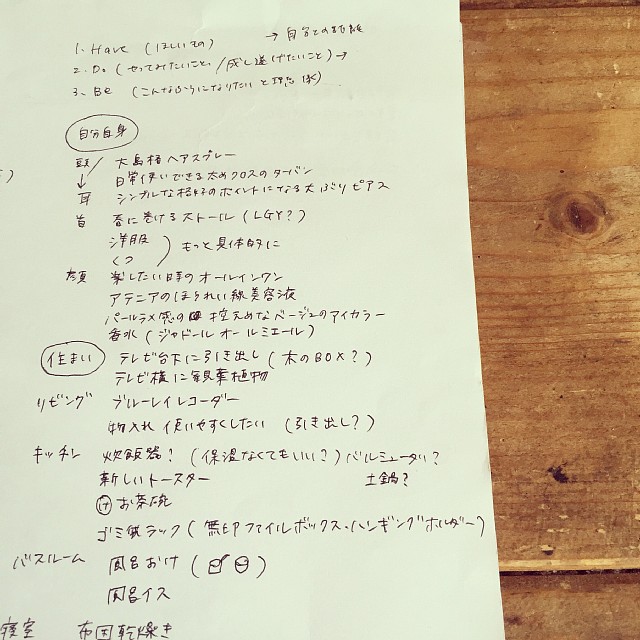 1. Have (ほしいもの) → 自分との距離
2. Do (やってみたいこと/成し遂げたいこと) →
3. Be (こんなふうになりたいと理想像)
自分自身
頭 大島椿ヘアスプレー
↓ 日常使いできる太めクロスのターバン
耳 シンプルな格好のポイントになる大ぶりピアス
首 春に巻けるストール (LGY?)
洋服
くつ もっと具体的に
顔 楽したい日時のオールインワン
アテニアのほうれい線美容液
パールラメ感の控えめなベージュのアイカラー
香水 (ジャドール オールミエール)
住まい テレビ台下に引き出し (木のBOX?)
テレビ横に観葉植物
リビング ブルーレイレコーダー
物入れ 使いやすくしたい (引き出し?)
キッチン 炊飯器? (保温なくてもいい?) バルミューダ?
新しいトースター 土鍋?
お茶碗
ゴミ袋ラック (無印ファイルボックス・ハンギングホルダー)
バスルーム 風呂おけ ( )
風呂イス
寝室 布団乾燥き